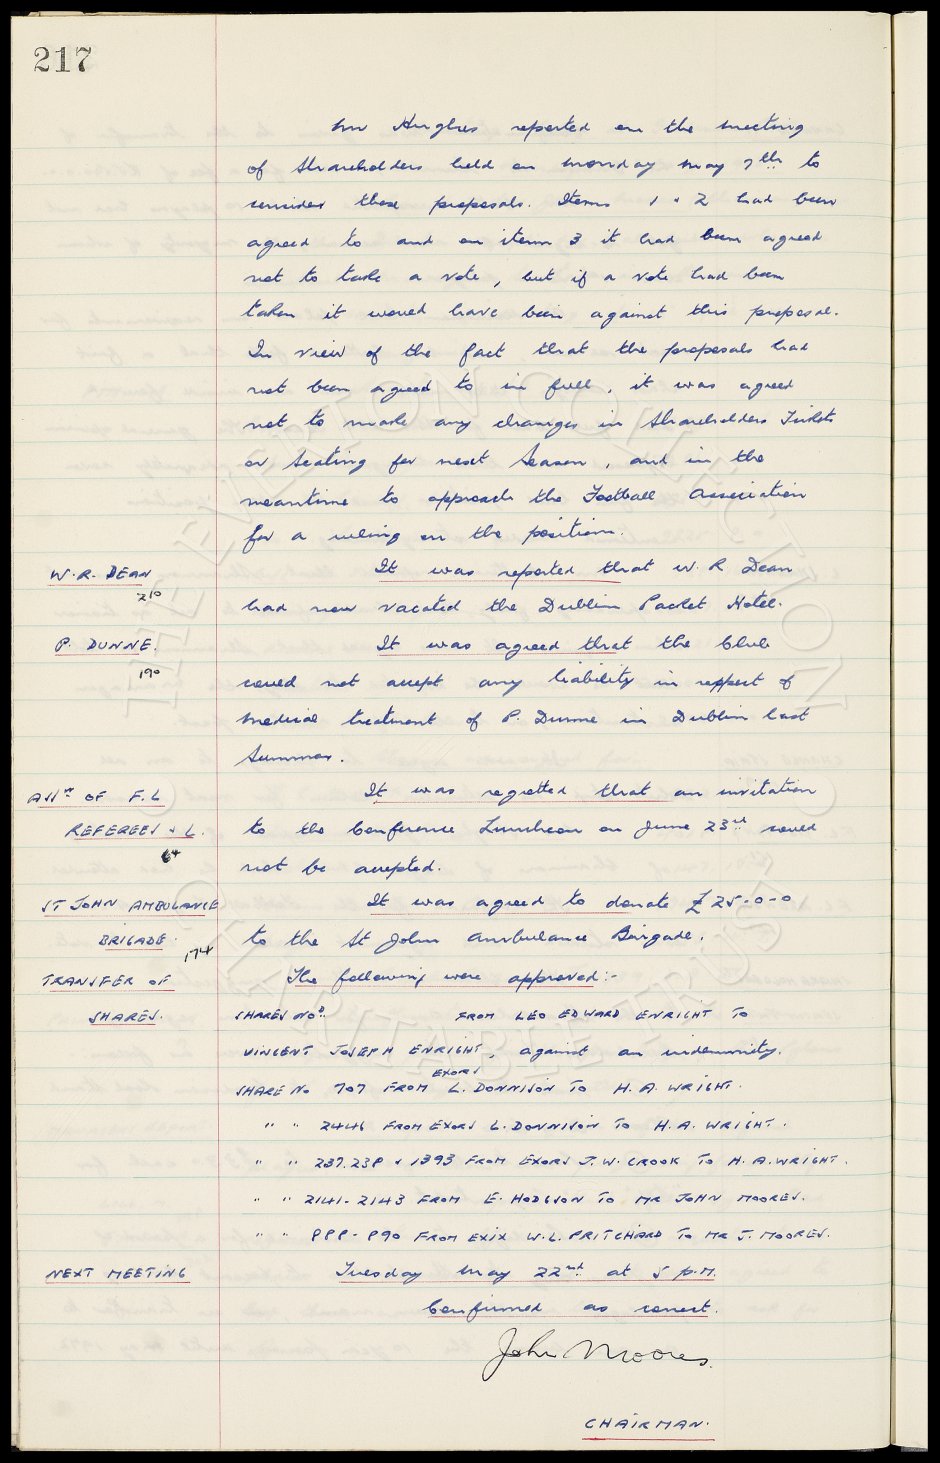 217
Mr Hughes reported on the meeting
of Shareholders held on Monday May 7th to
consider these proposals. Items 1 & 2 had been
agreed to and on item 3 it had been agreed
not to take a vote, but if a vote had been
taken it would have been against this proposal.
In view of the fact that the proposals had
not been agreed to in full, it was agreed
not to make any changes in Shareholders Tickets
or Seating for next Season, and in the
meantime to approach the Football Association
for a ruling on the position.
W. R. DEAN It was reported that W. R Dean
210 had now vacated the Dublin Packet Hotel.
P. DUNNE. It was agreed that the Club
190 could not accept any liability in respect of
medical treatment of P. Dunne in Dublin last
Summer.
ASSn OF F.L It was regretted that an invitation
REFEREES & L. to the Conference Luncheon on June 23rd could
64 not be accepted.
ST JOHN AMBULANCE It was agreed to donate £25-0-0
BRIGADE. to the St John Ambulance Brigade.
174
TRANSFER OF The following were approved:-
SHARES. SHARES NOS. FROM LEO EDWARD ENRIGHT TO
VINCENT JOSEPH ENRIGHT, against an indemnity.
SHARE No 707 FROM EXORS L. DONNISON TO H. A. WRIGHT.
" " 2446 FROM EXORS L. DONNISON TO H. A. WRIGHT.
" " 237. 238 & 1393 FROM EXORS J. W. CROOK TO H. A. WRIGHT.
" " 2141-2143 FROM E. HODGSON TO MR JOHN MOORES.
" " 888-890 FROM EXIX W. L. PRITCHARD TO MR J. MOORES.
NEXT MEETING Tuesday May 22nd at 5 p.m.
Confirmed as correct.
John Moores.
CHAIRMAN.
THE EVERTON COLLECTION
CHARITABLE TRUST